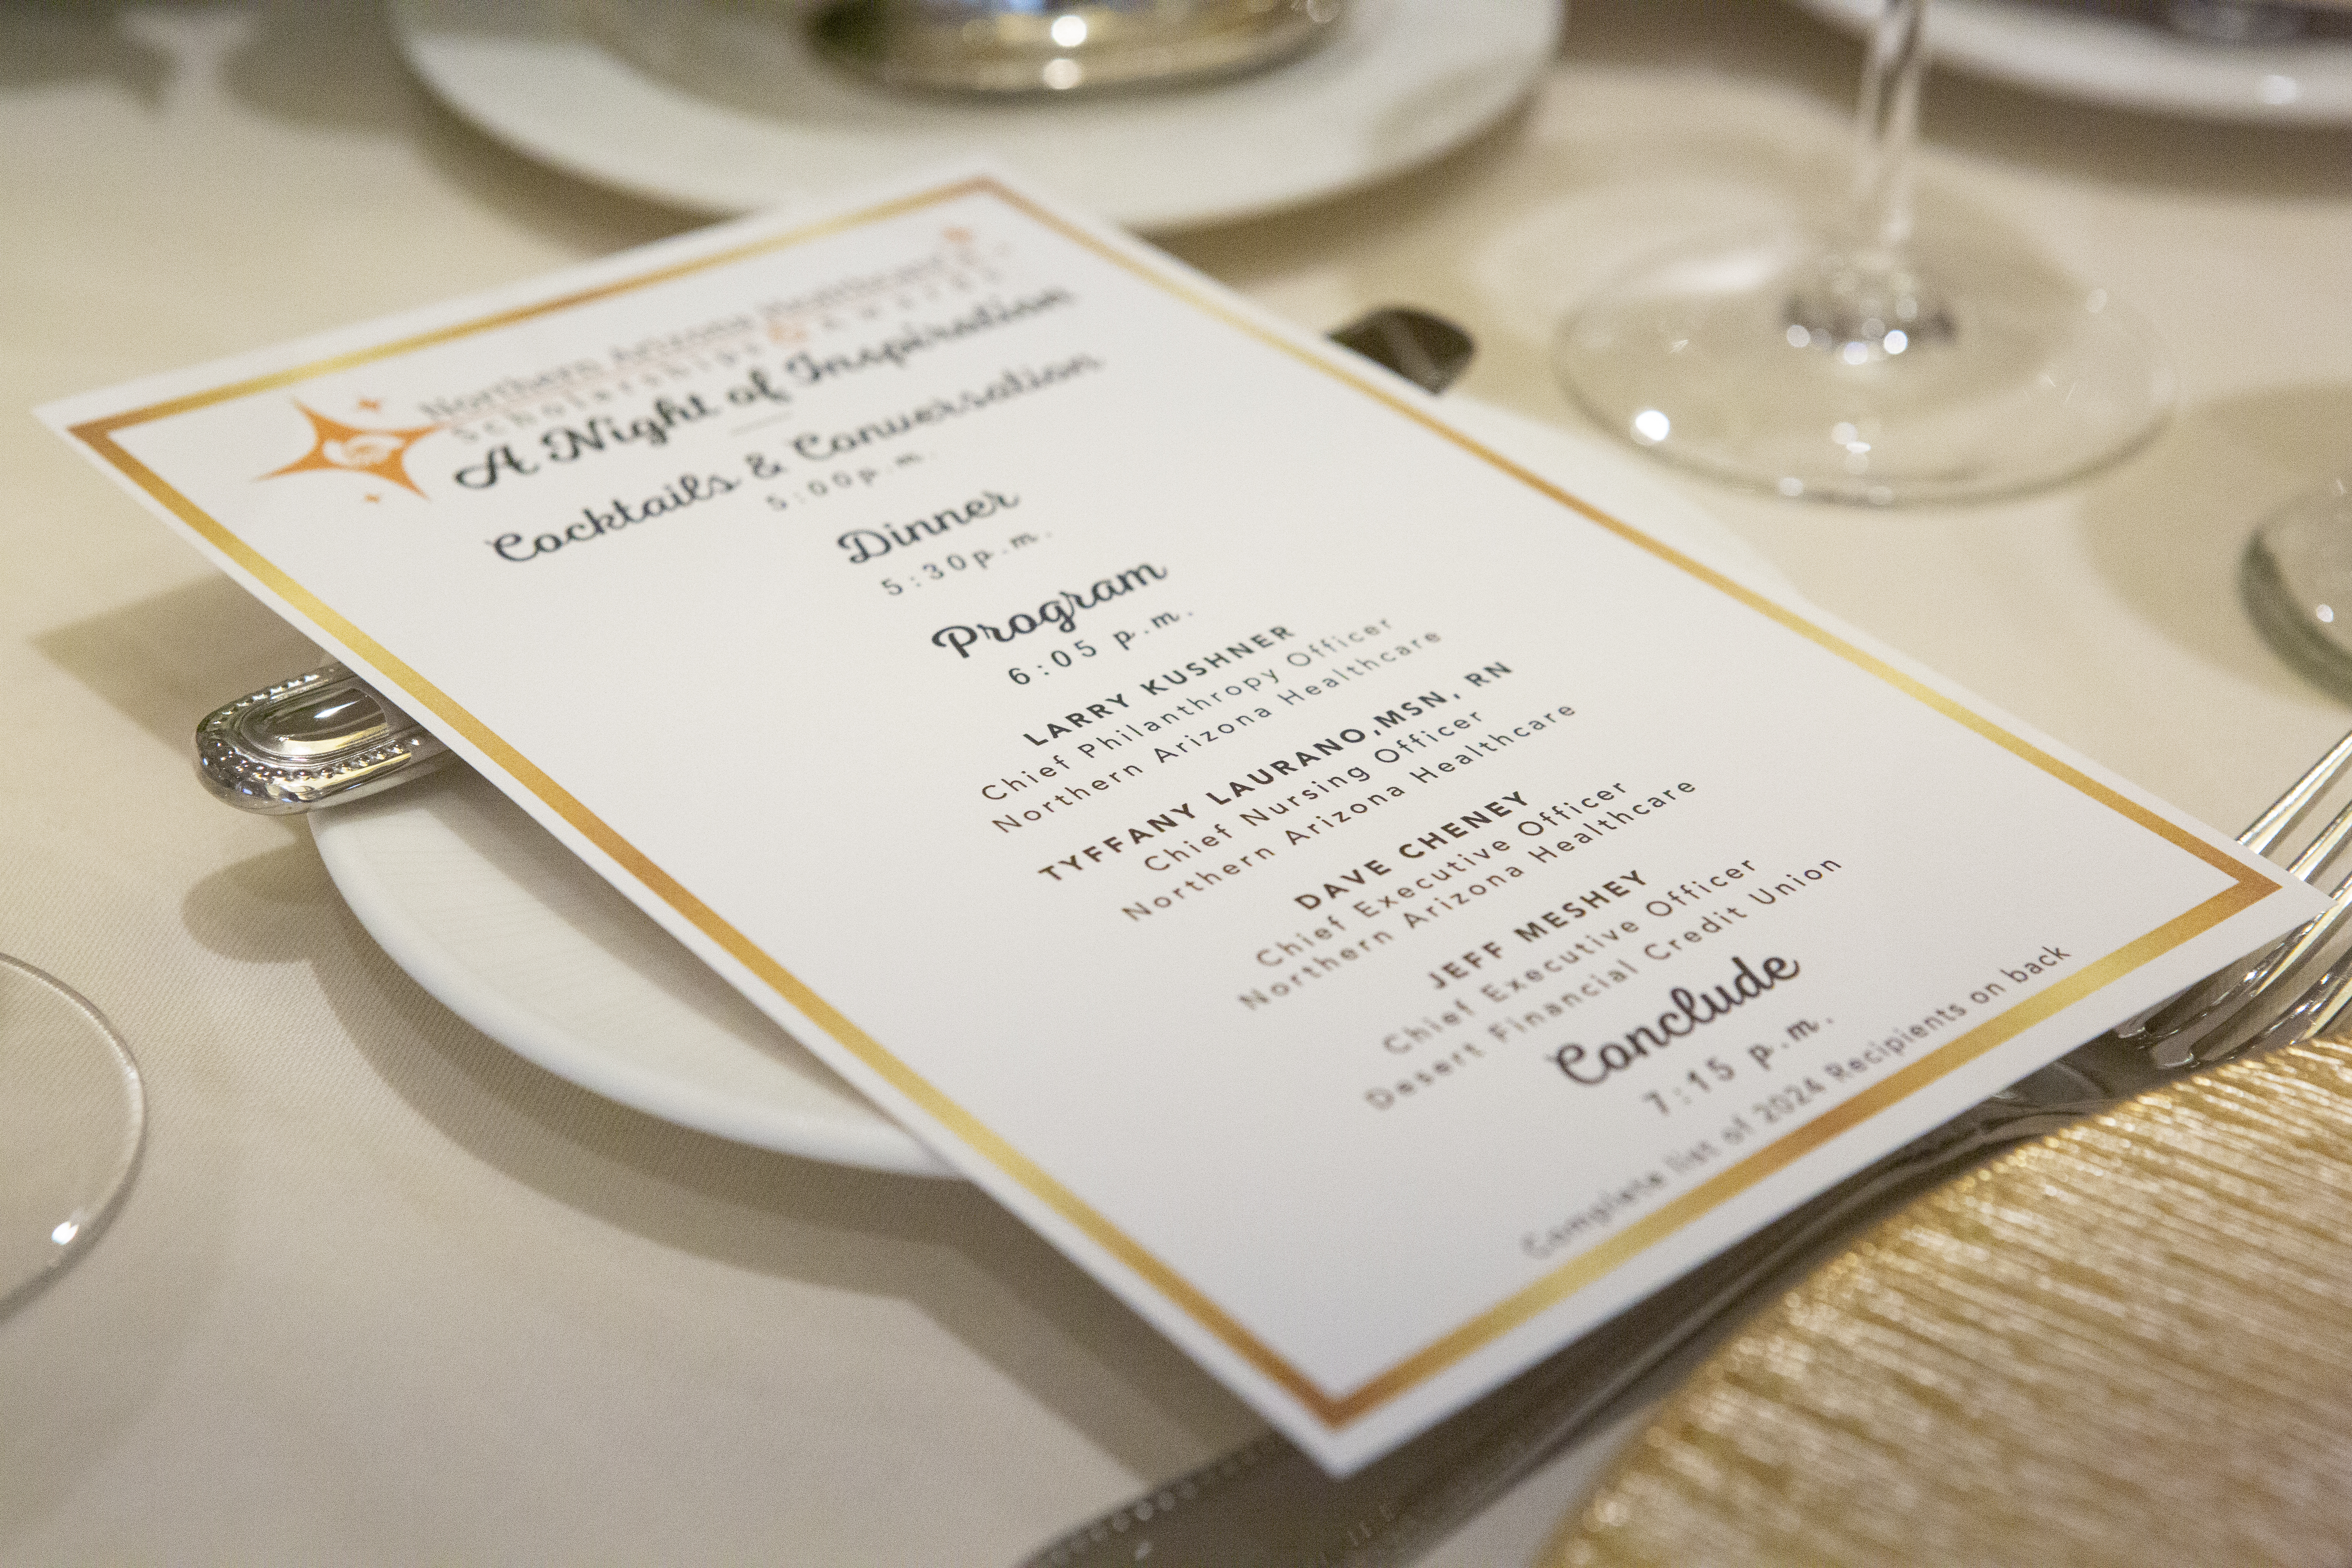 Northern Arizona Healthcare
Scholarships & Awards
A Night of Inspiration
Cocktails & Conversation
5:00p.m.
Dinner
5:30p.m.
Program
6:05 p.m.
LARRY KUSHNER
Chief Philanthropy Officer
Northern Arizona Healthcare
TYFFANY LAURANO,MSN, RN
Chief Nursing Officer
Northern Arizona Healthcare
DAVE CHENEY
Chief Executive Officer
Northern Arizona Healthcare
JEFF MESHEY
Chief Executive Officer
Desert Financial Credit Union
Conclude
7:15 p.m.
Complete list of 2024 Recipients on back